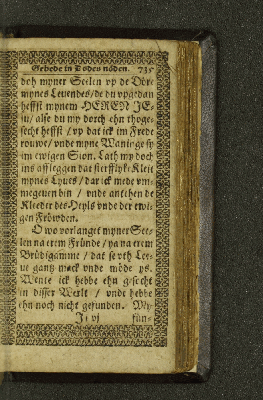 Gebede in Dodes nöden. 735
doh myner Seelen vp de Döre
mynes Leuendes / de du vpgedan
heffst mynem HEREN JE-
su / alse du my dorch ehn thoge-
secht heffst / vp dat ick im Frede
rouwe / vnde myne Waninge sy
im ewigen Sion. Lath my doch
ins affleggen dat sterfflyke Kleit
mynes Lyues / dar ick mede vm-
megeuen bin / vnde antehen de
Kleeder des Heyls vnde der ewi-
gen Fröwden.
O wo vorlanget myner See-
len na erem Fründe / ya na erem
Brüdigamme / dat se vth Lee-
ue gantz mack vnde möde ys.
Wente ick hebbe ehn gesocht
in disser Werlt / vnde hebbe
ehn noch nicht gefunden. My-
Ji vj fün-